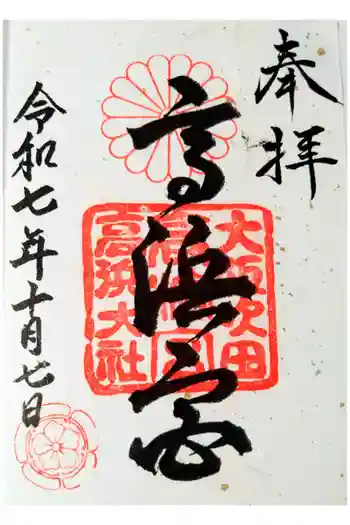 奉拝
高浜宮
大阪吹田
高浜大社
令和七年十月七日